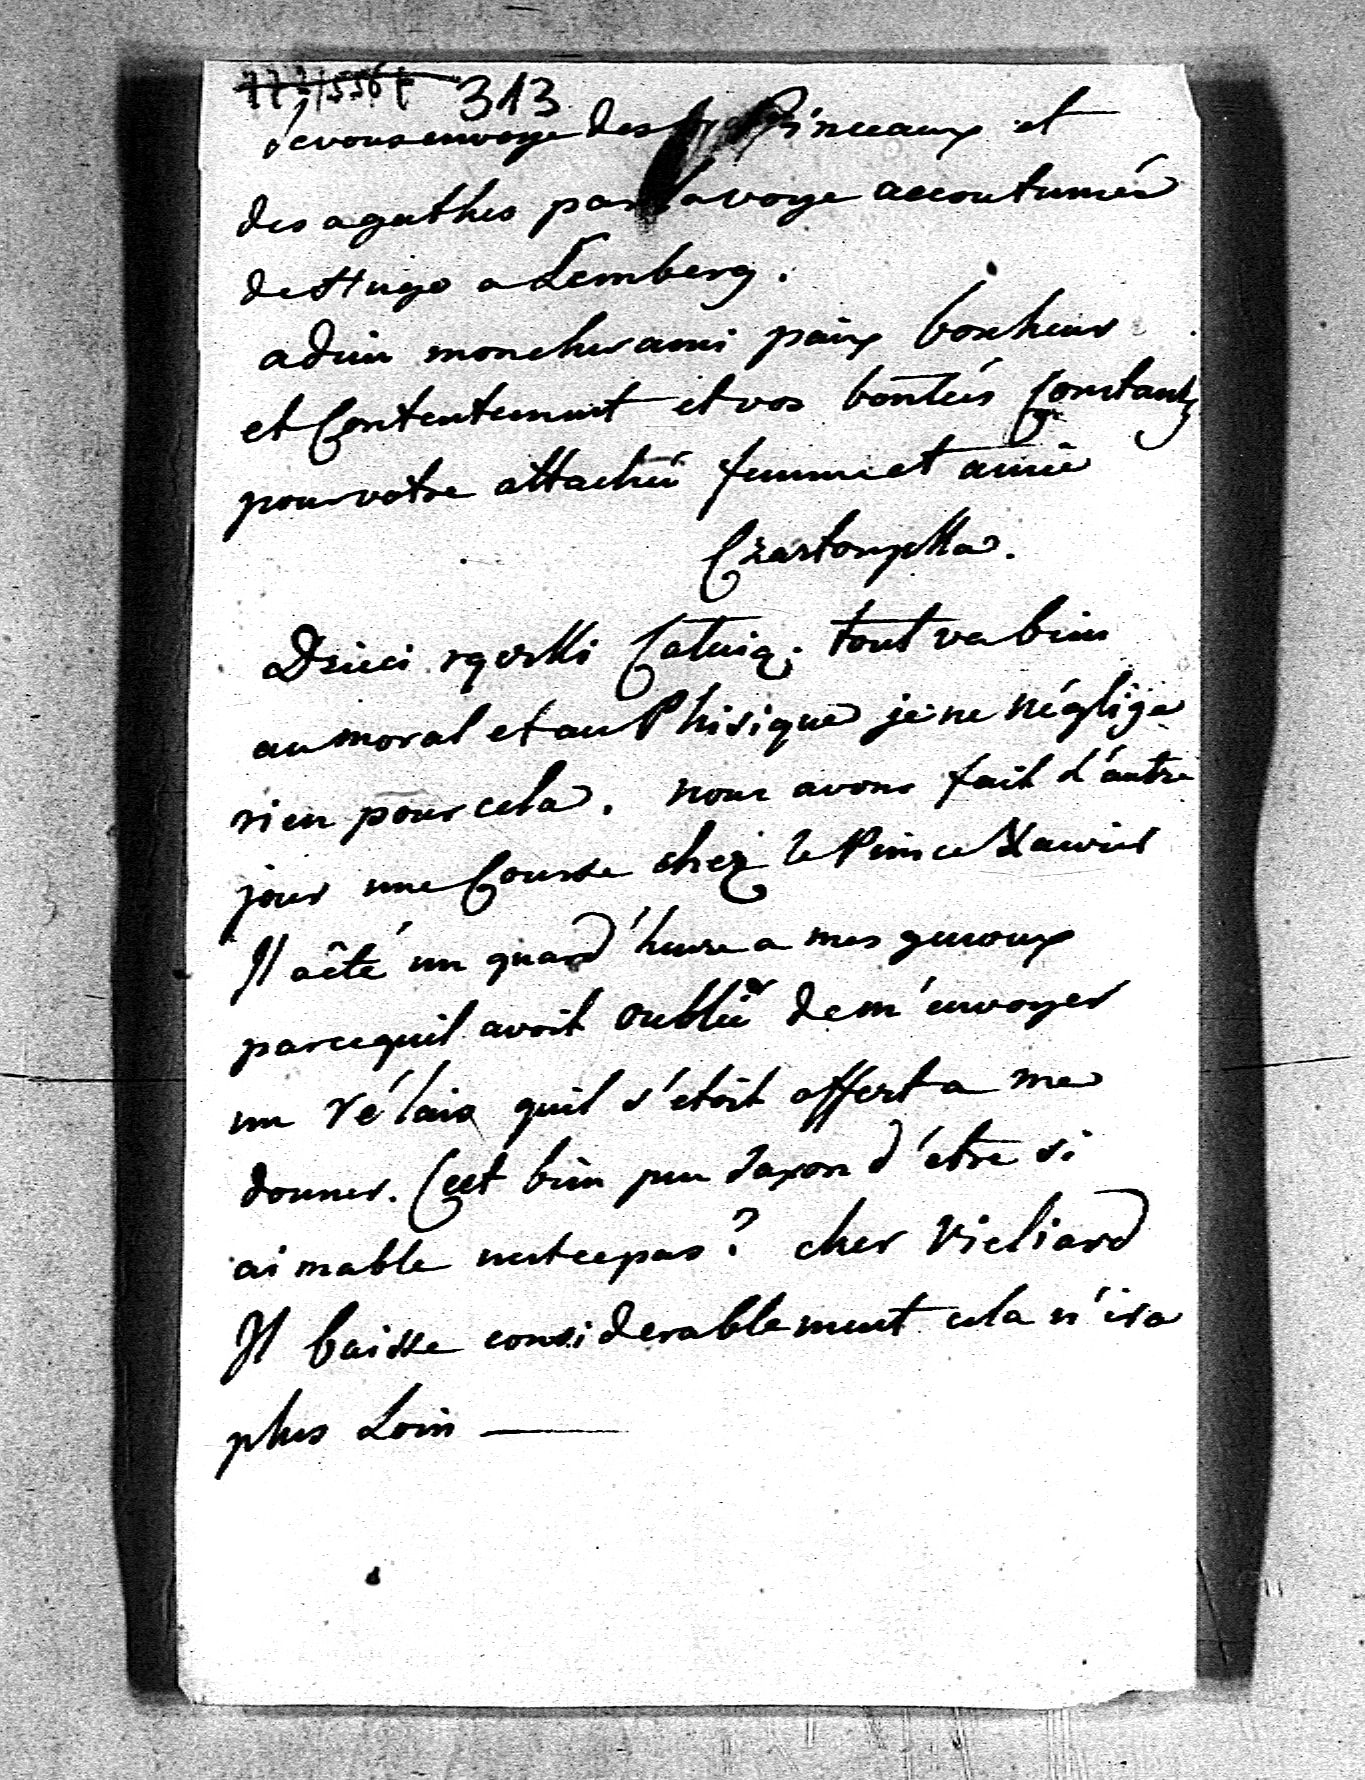 313
je vous envoye des Pinceaux et
des agathes par la voye accoutumée
de Hugo a Lemberg.
adieu mon cher ami paix bonheur
et Contentement et vos bontées Constants
pour votre attachée femme et amie
Czartoryska.
Dzieci rączki Całuią. tout va bien
au moral et au Phisique je ne néglige
rien pour cela. nous avons fait l'autre
jour une Course chez le Prince Xavier
Il a été un quard d'heure a mes genoux
parcequil avoit oublié de m'envoyer
un rélais quil s'etoit offert a me
donner. C'est bien peu Saxon d'être si
aimable nestcepas? cher Vieliard
Il baisse considerablement cela n'ira
plus Loin —